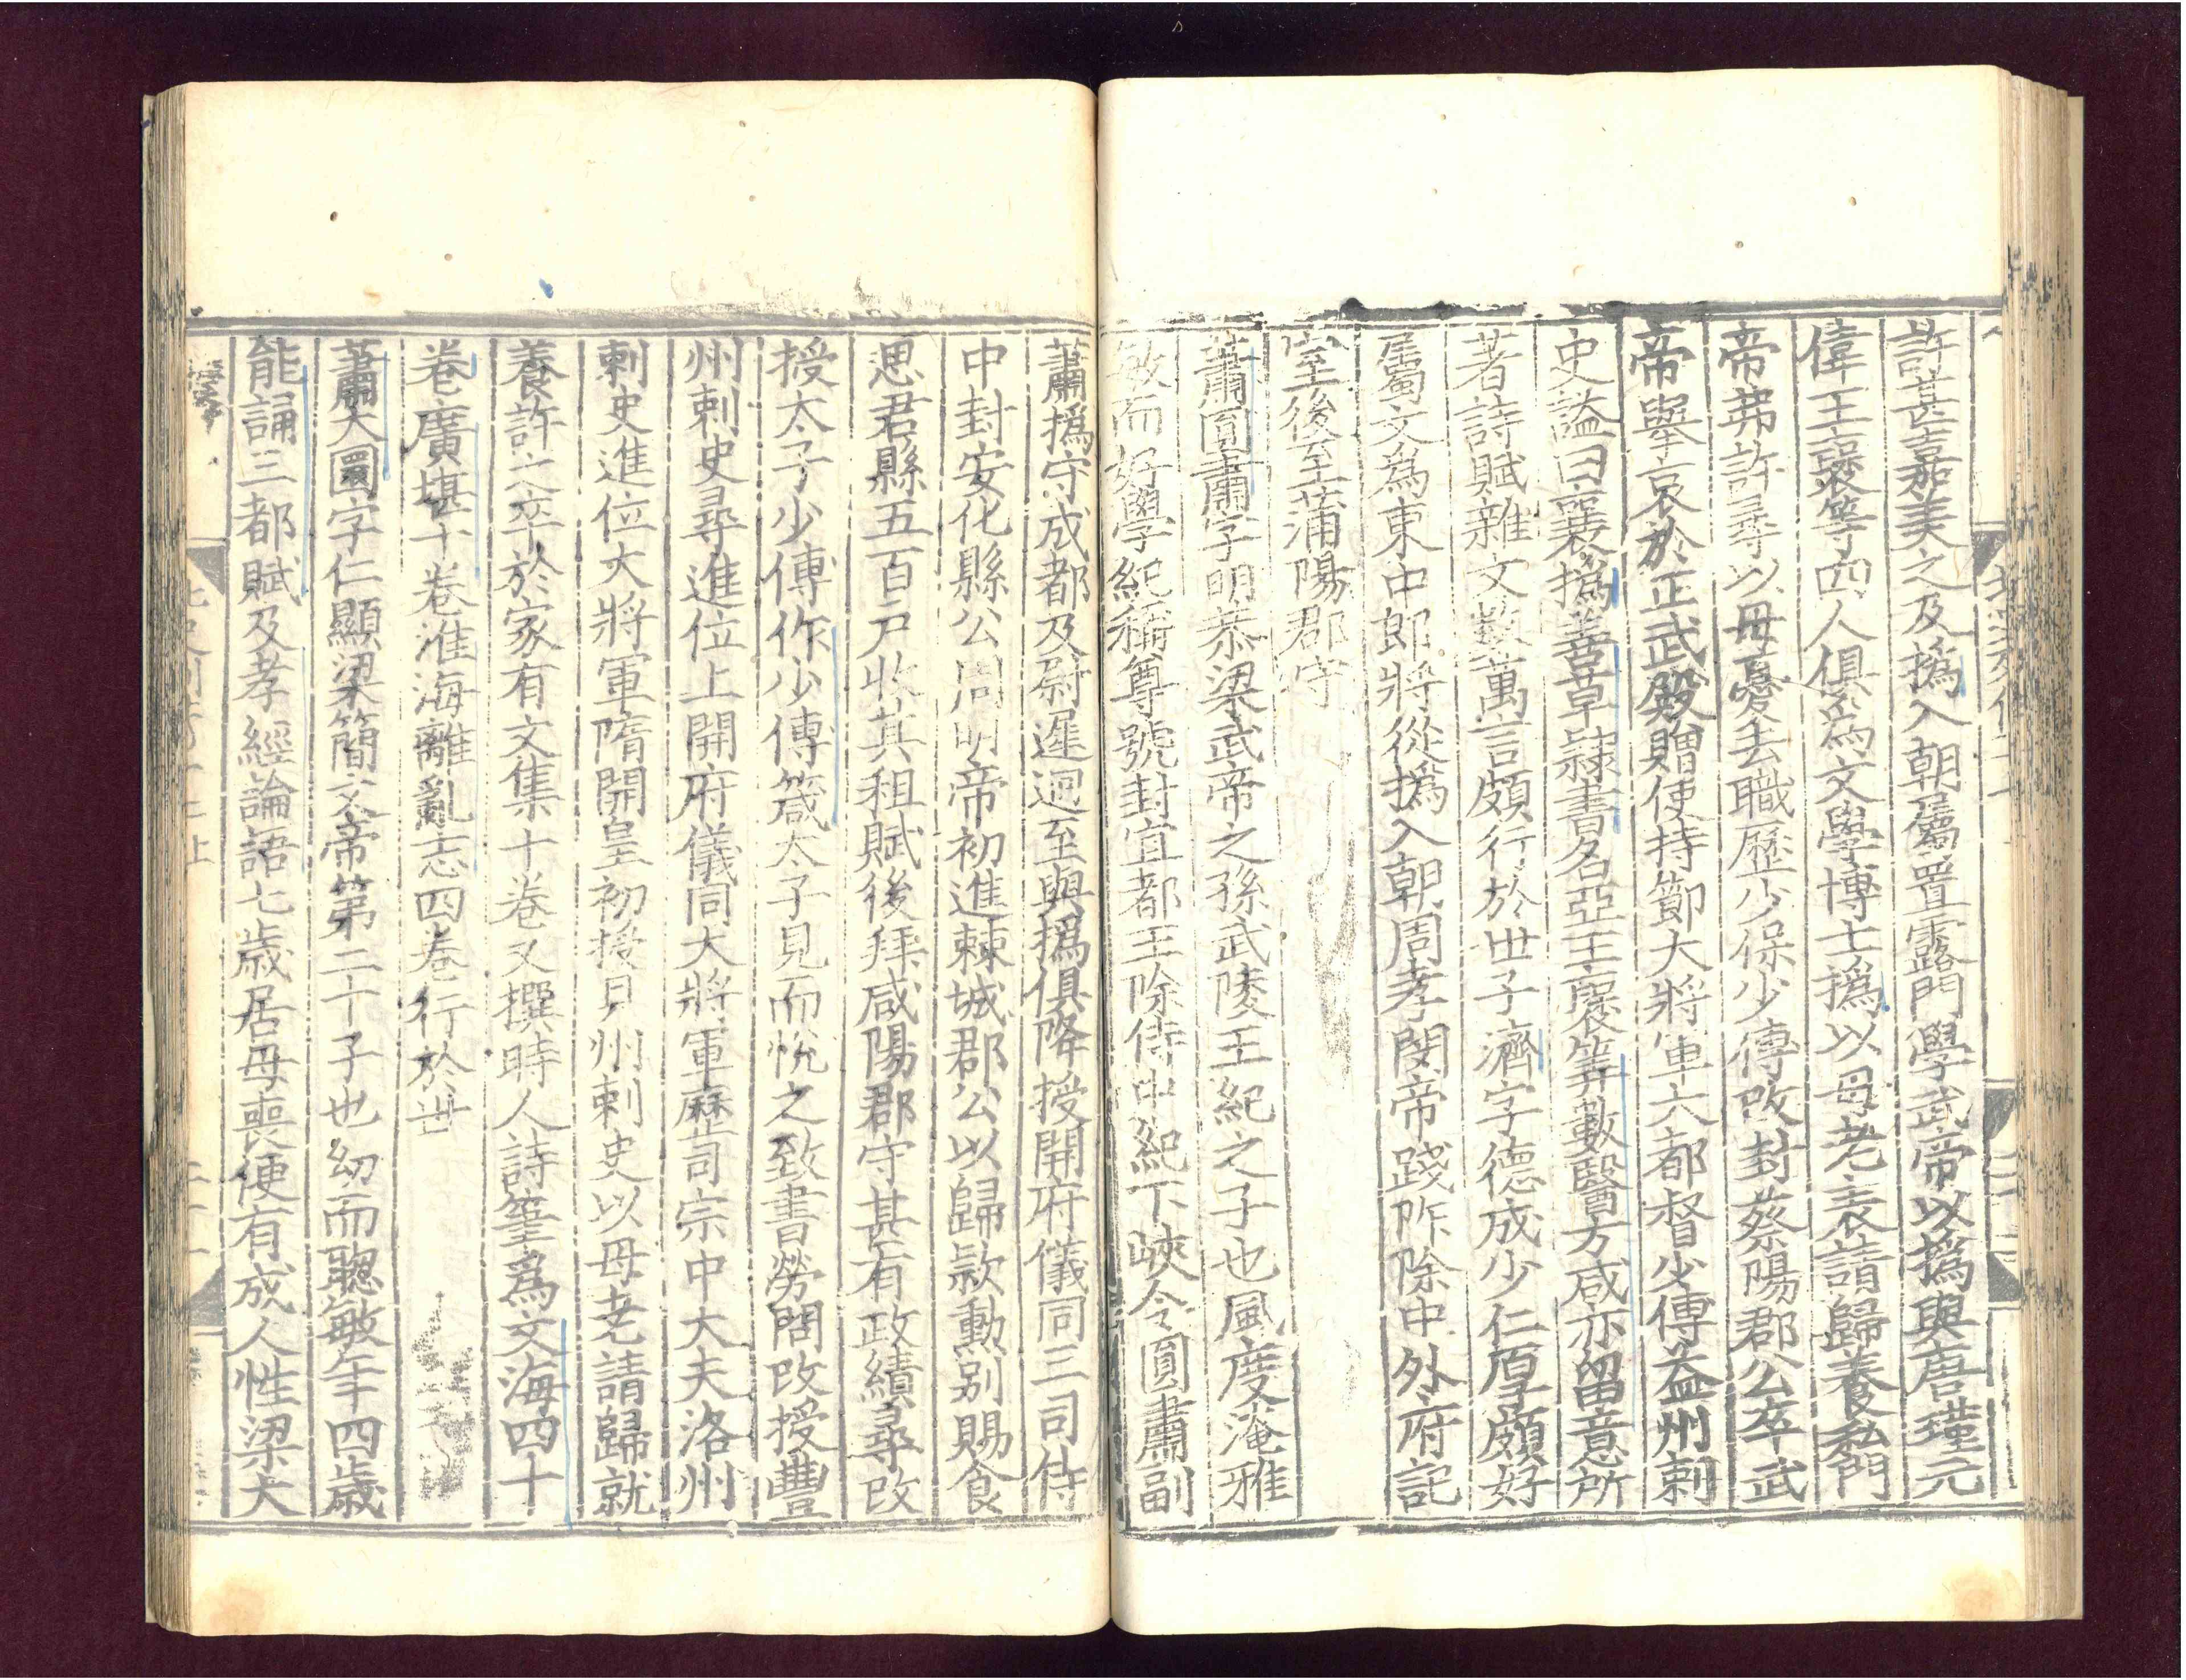 許甚嘉美之及撝入朝屬置露門學武帝以撝與唐瑾元
偉王襃等四人俱爲文學博士撝以母老表請歸養私門
帝弗許尋以母憂去職歷少保少傅改封蔡陽郡公卒武
帝舉哀於正武殿贈使持節大將軍六都督少傅益州刺
史謚曰襄撝善草隸書名亞王襃筭數醫方咸亦留意所
著詩賦雜文數萬言頗行於世子濟字德成少仁厚頗好
屬文爲東中郎將從撝入朝周孝閔帝踐阼除中外府記
室後至蒲陽郡守
蕭圓肅字明恭梁武帝之孫武陵王紀之子也風度淹雅
敏而好學紀稱尊號封宜都王除侍中紀下峽令圓肅副
蕭撝守成都及尉遲迥至與撝俱降授開府儀同三司侍
中封安化縣公周明帝初進棘城郡公以歸款勳别賜食
思君縣五百戶收其租賦後拜咸陽郡守甚有政績尋改
授太子少傅作少傅箴太子見而悅之致書勞問改授豐
州刺史尋進位上開府儀同大將軍歷司宗中大夫洛州
刺史進位大將軍隋開皇初授貝州刺史以母老請歸就
養許之卒於家有文集十卷又撰時人詩筆爲文海四十
卷廣堪十卷淮海離亂志四卷行於世
蕭大圜字仁顯梁簡文帝第二十子也幼而聰敏年四歲
能誦三都賦及孝經論語七歲居母喪便有成人性梁大